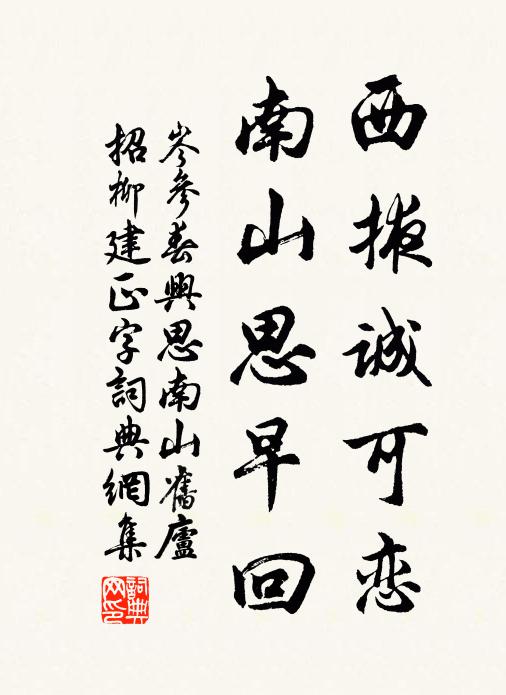 西掖诚可恋
南山思早回
岑参春興思南山舊廬
招柳建正字詞典網集
詞典网印